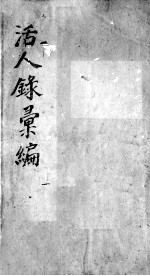 活人錄彙編
一